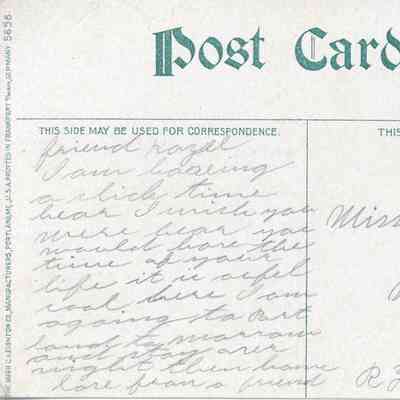 Post Card
THIS SIDE MAY BE USED FOR CORRESPONDENCE.
THIS
friend hazel
I am haveing
a slick time
hear I wish you
were hear you
would have the
time of your
life it is aufel
cool here I am
agoing to Port
land to morrow
and stay over
night then home
love from a friend
Miss
R
THE HUGH C. LEIGHTON CO., MANUFACTURERS, PORTLAND, ME., U.S.A. PRINTED IN FRANKFORT GERMANY 5656